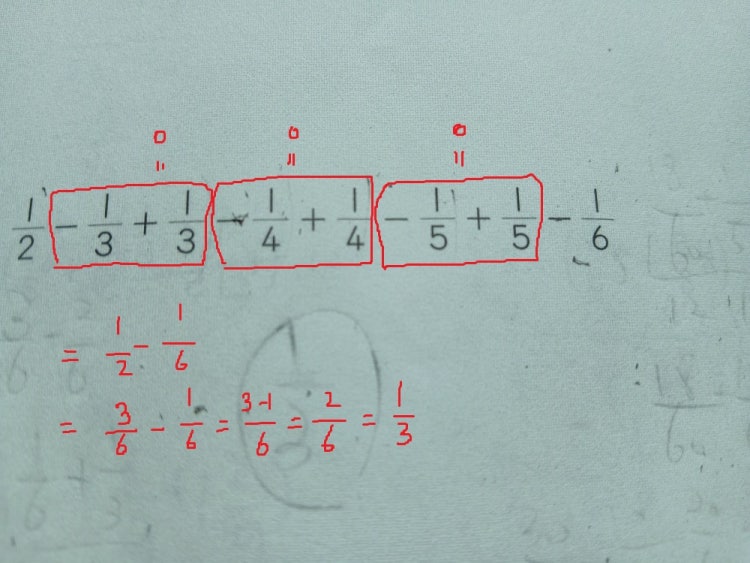 0 0 0
= = =
1/2 - 1/3 + 1/3 - 1/4 + 1/4 - 1/5 + 1/5 - 1/6
= 1/2 - 1/6
= 3/6 - 1/6 = 3-1/6 = 2/6 = 1/3